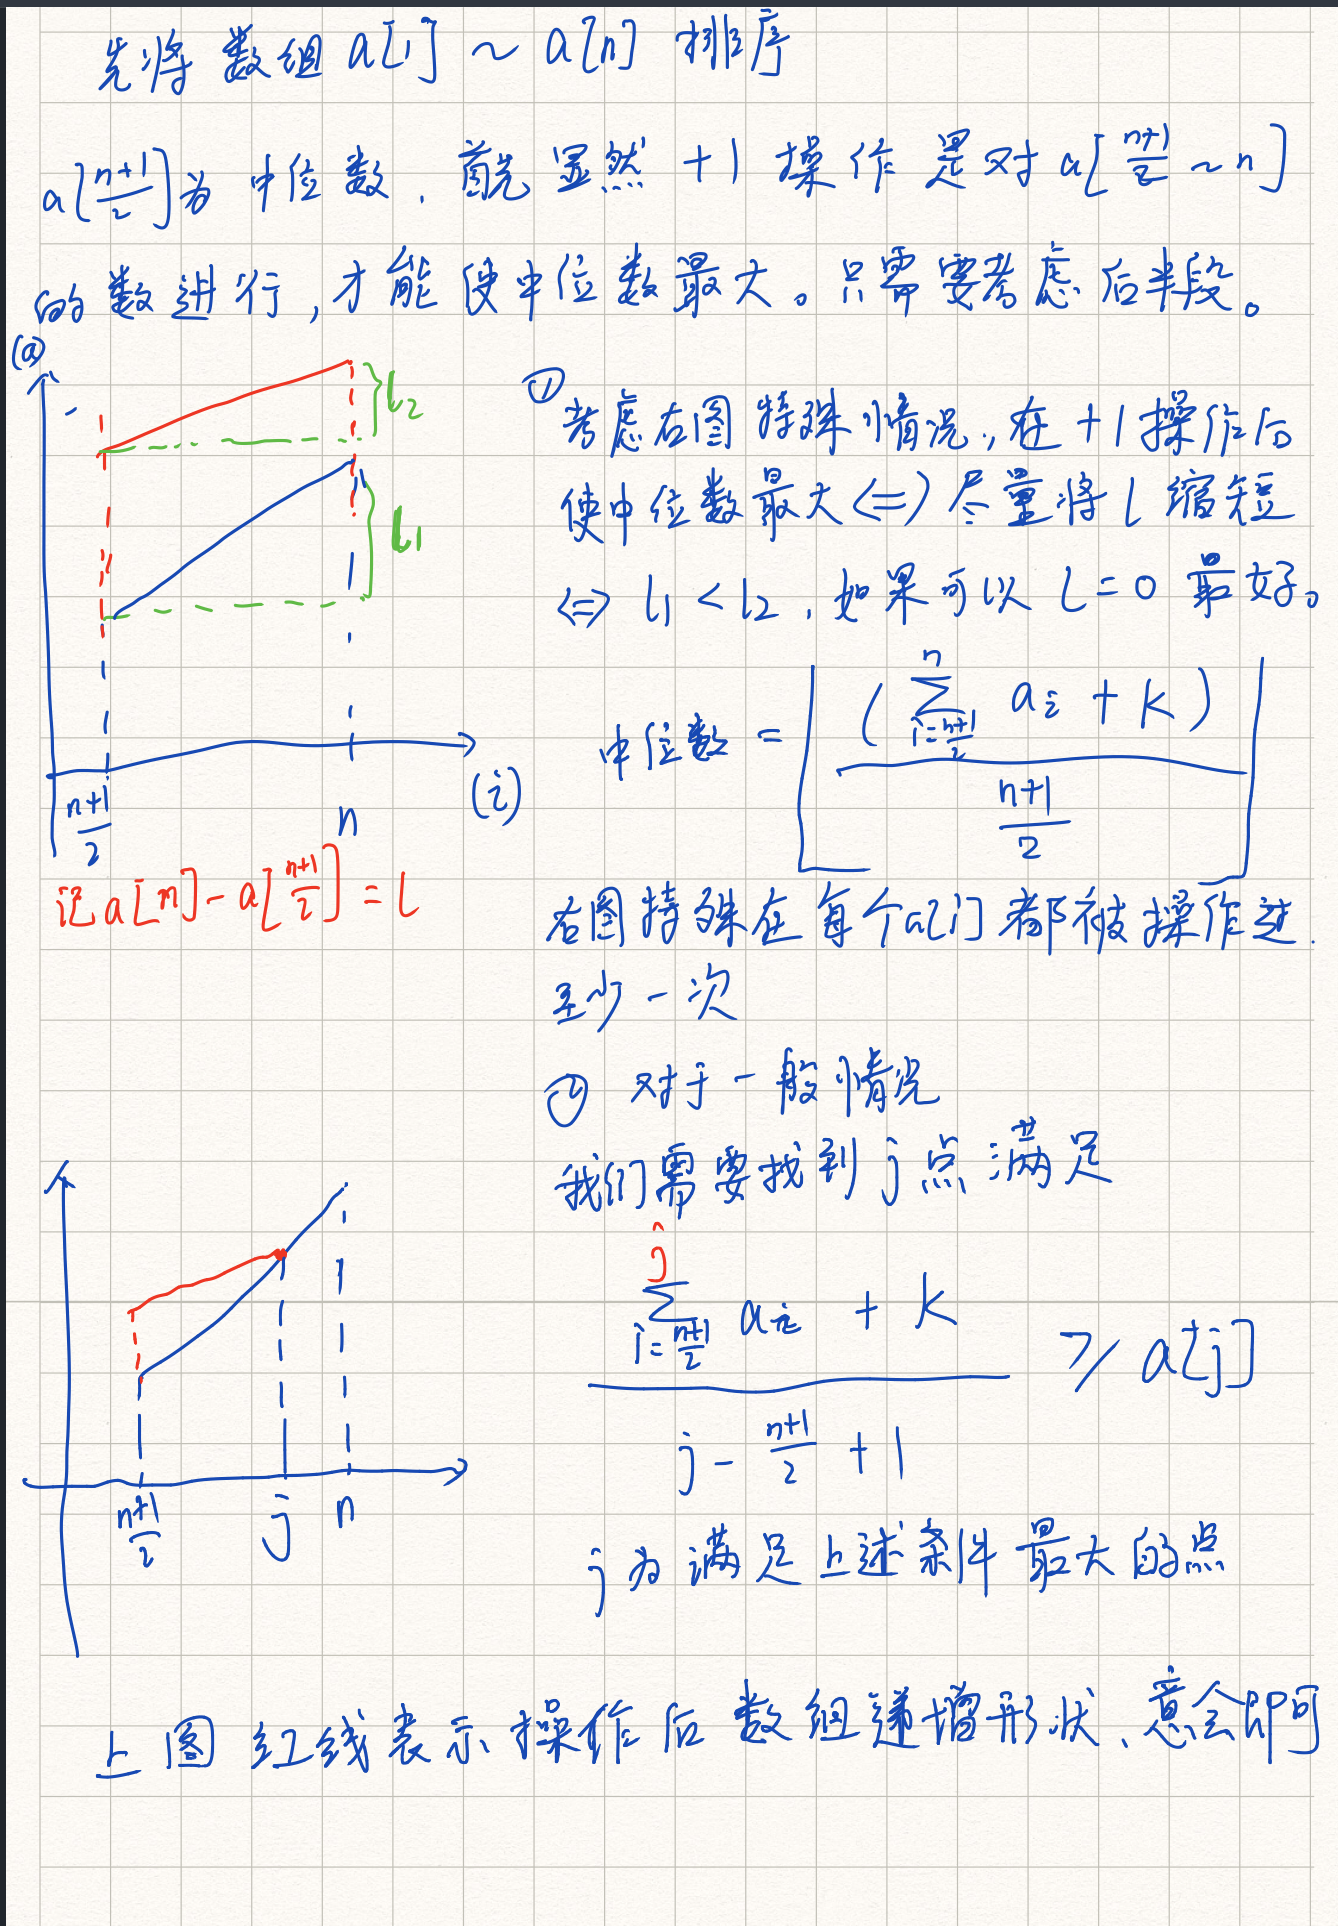 先将数组 a[1] ~ a[n] 排序
a[\frac{n+1}{2}]为中位数,首先显然 +1 操作是对 a[\frac{n+1}{2} ~ n]
的数进行,才能使中位数最大。只需要考虑后半段。
(a)
l_2
l_1
\frac{n+1}{2}
n
(i)
记 a[n] - a[\frac{n+1}{2}] = l
① 考虑右图特殊情况,在 +1 操作后
使中位数最大 <=> 尽量将 l 缩短
<=> l_1 < l_2,如果可以 l = 0 最好。
中位数 = ⌊\frac{(\sum_{i=\frac{n+1}{2}}^{n} a_i + k)}{\frac{n+1}{2}}⌋
右图特殊在每个a[i]都被操作过
至少一次
② 对于一般情况
我们需要找到 j 点满足
\frac{\sum_{i=\frac{n+1}{2}}^{j} a_i + k}{j - \frac{n+1}{2} + 1} ≥ a[j]
j 为满足上述条件最大的点
\frac{n+1}{2}
j
n
上图红线表示操作后数组递增形状、意会即可